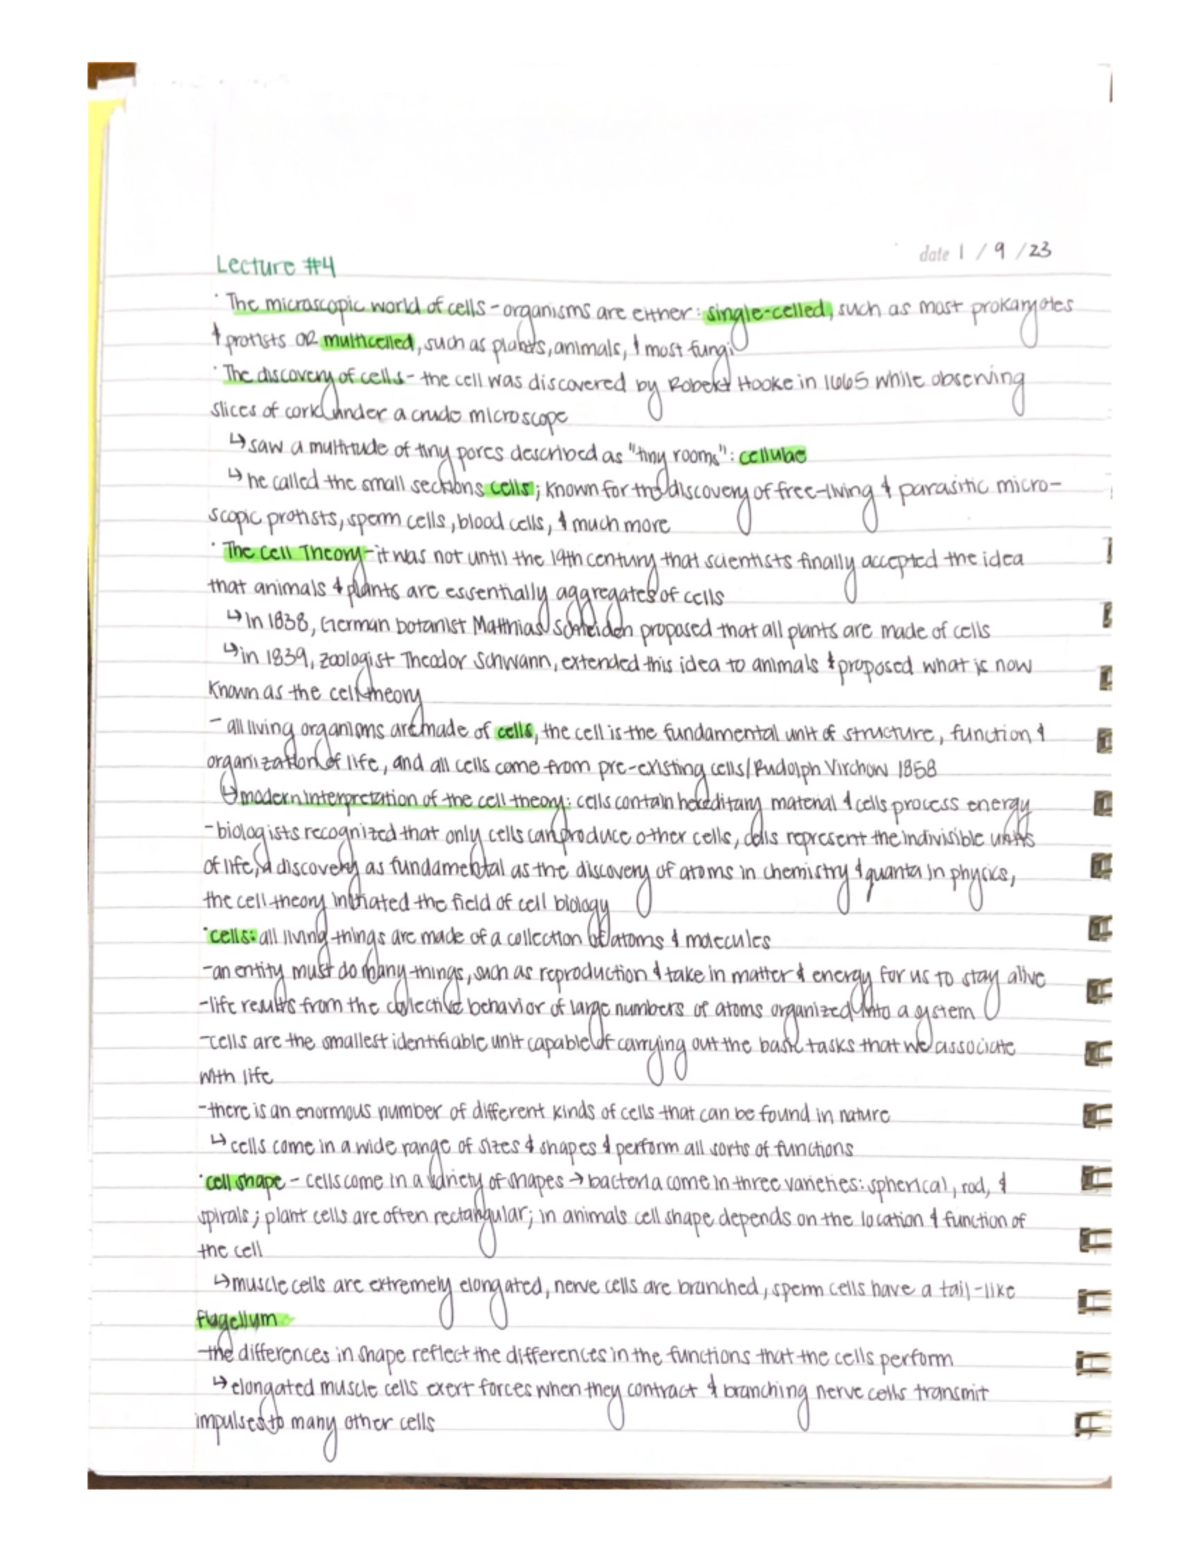 date 1 / 9 / 23
Lecture #4
· The microscopic world of cells - organisms are either: single-celled, such as most prokaryotes
& protists OR multicelled, such as plants, animals, & most fungi
· The discovery of cells - the cell was discovered by Robert Hooke in 1665 while observing
slices of cork under a crude microscope
↳ saw a multitude of tiny pores described as "tiny rooms": cellulae
↳ he called the small sections cells; known for the discovery of free-living & parasitic micro-
scopic protists, sperm cells, blood cells, & much more
· The Cell Theory - it was not until the 19th century that scientists finally accepted the idea
that animals & plants are essentially aggregates of cells
↳ In 1838, German botanist Matthias Schleiden proposed that all plants are made of cells
↳ in 1839, zoologist Theodor Schwann, extended this idea to animals & proposed what is now
known as the cell theory
- all living organisms are made of cells, the cell is the fundamental unit of structure, function &
organization of life, and all cells come from pre-existing cells/Rudolph Virchow 1858
↳ modern interpretation of the cell theory: cells contain hereditary material & cells process energy
- biologists recognized that only cells can produce other cells, cells represent the indivisible units
of life, a discovery as fundamental as the discovery of atoms in chemistry & quanta in physics,
the cell theory initiated the field of cell biology
· cells: all living things are made of a collection of atoms & molecules
- an entity must do many things, such as reproduction & take in matter & energy for us to stay alive
- life results from the collective behavior of large numbers of atoms organized into a system
- cells are the smallest identifiable unit capable of carrying out the basic tasks that we associate
with life
- there is an enormous number of different kinds of cells that can be found in nature
↳ cells come in a wide range of sizes & shapes & perform all sorts of functions
· cell shape - cells come in a variety of shapes → bacteria come in three varieties: spherical, rod, &
spirals; plant cells are often rectangular; in animals cell shape depends on the location & function of
the cell
↳ muscle cells are extremely elongated, nerve cells are branched, sperm cells have a tail-like
flagellum
- the differences in shape reflect the differences in the functions that the cells perform
↳ elongated muscle cells exert forces when they contract & branching nerve cells transmit
impulses to many other cells